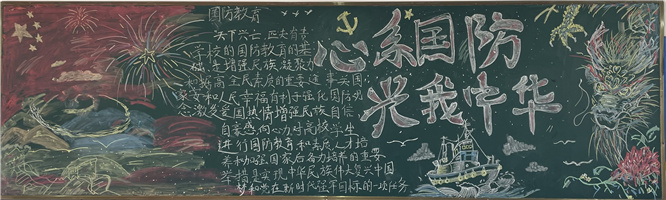 国防教育
天下兴亡,匹夫有责
学校的国防教育的基
础,是增强民族凝聚力
和提高全民素质的重要途
家安和人民幸福有利于强化国防观
念激发爱国热情增强民族自信
自豪感向心力对高校学生
进行国防教育和素质人才培
养和加强国家后备力培养的重要
举措是实现中华民族伟大复兴中国
梦和党在新时代强军目标的一项任务
心系国防
兴我中华